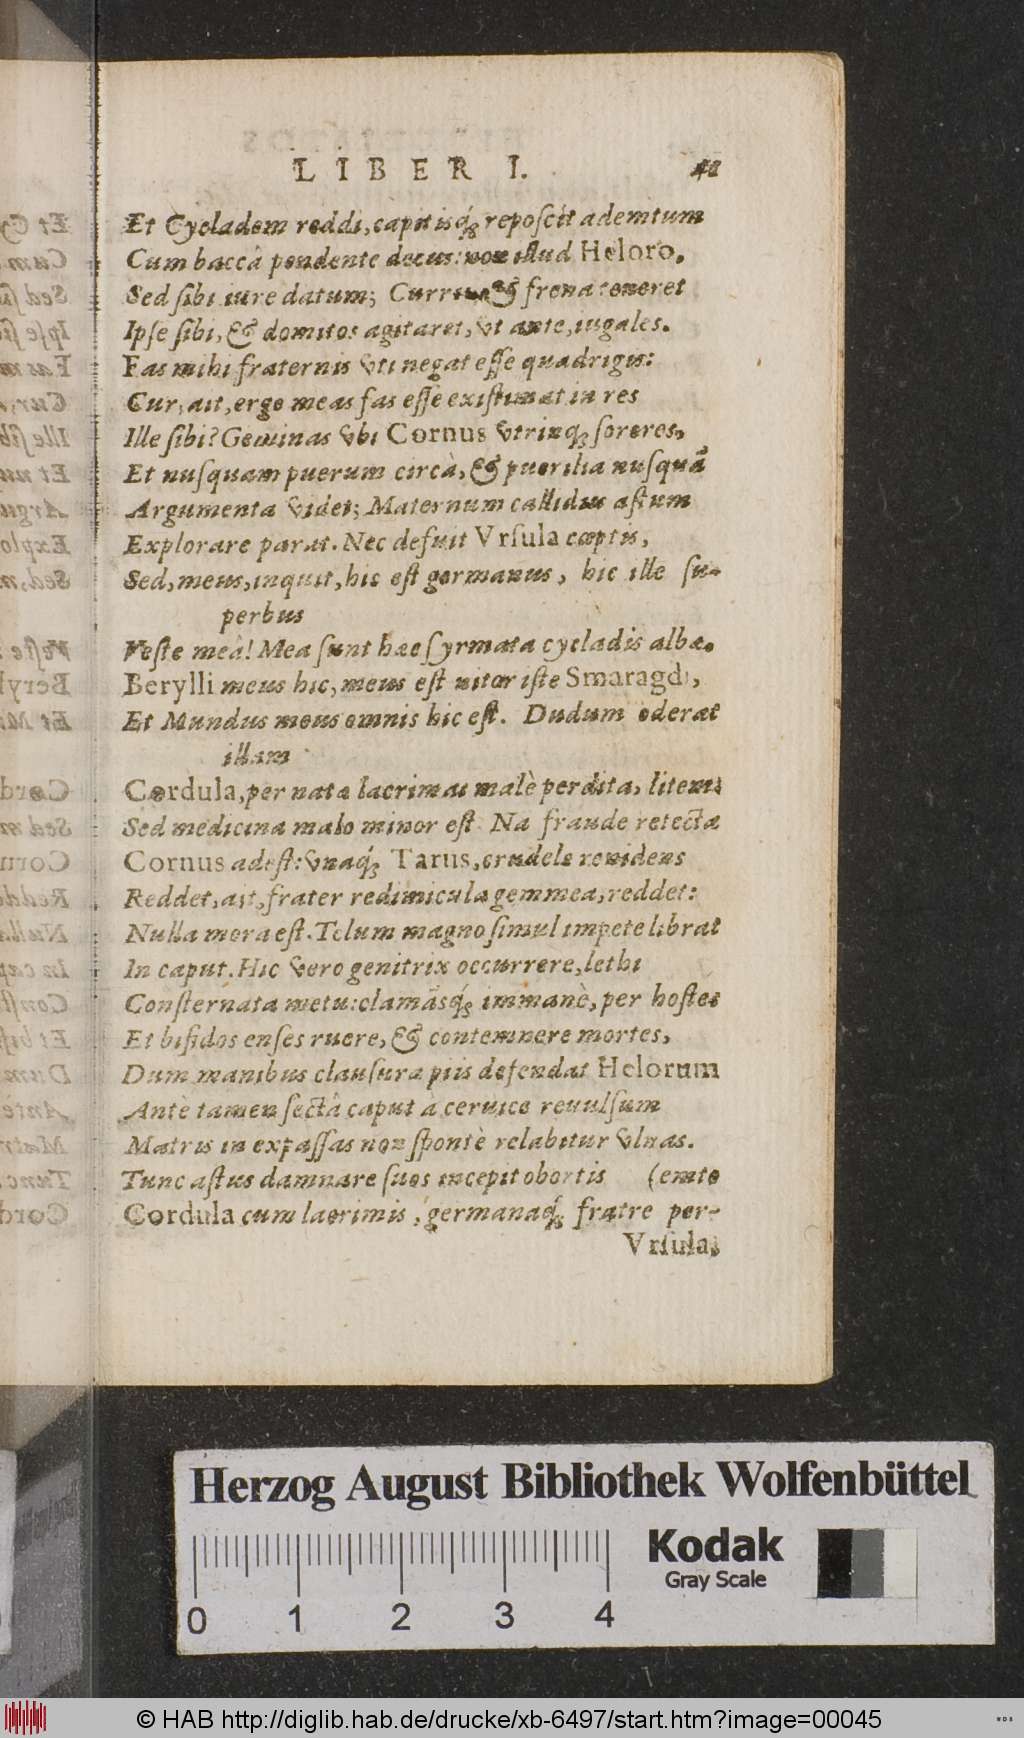 LIBER I. 41
Et Cycladem reddi, capitisq́; reposcit ademtum
Cum baccâ pendente decus: non illud Heloro,
Sed sibi iure datum; Currus & frena teneret
Ipse sibi, & domitos agitaret, vt ante, iugales.
Fas mihi fraternis vti negat esse quadrigis:
Cur, ait, ergo meas fas esse existimat in res
Ille sibi? Geminas vbi Cornus vtrinq; sorores,
Et nusquam puerum circà, & puerilia nusquã
Argumenta videt; Maternum callidus astum
Explorare parat. Nec defuit Vrsula cœptis,
Sed, meus, inquit, hic est germanus, hic ille su-
perbus
Veste meâ! Mea sunt hæc syrmata cycladis albæ.
Berylli meus hic, meus est nitor iste Smaragdi,
Et Mundus meus omnis hic est. Dudum oderat
illam
Cordula, per nata lacrimas malè perdita, litem:
Sed medicina malo minor est. Na fraude retectæ
Cornus adest: vnaq́; Tarus, crudele renidens
Reddet, ait, frater redimicula gemmea, reddet:
Nulla mora est. Telum magno simul impete librat
In caput. Hic vero genitrix occurrere, lethi
Consternata metu: clamãsq́; immanè, per hostes
Et bifidos enses ruere, & contemnere mortes,
Dum manibus clausura piis defendat Helorum
Antè tamen sectâ caput à ceruice reuulsum
Matris in expassas non spontè relabitur vlnas.
Tunc astus damnare suos incepit obortis (emto
Cordula cum lacrimis, germanaq́; fratre per-
Vrsula;
Herzog August Bibliothek Wolfenbüttel
0 1 2 3 4
Kodak
Gray Scale
© HAB http://diglib.hab.de/drucke/xb-6497/start.htm?image=00045